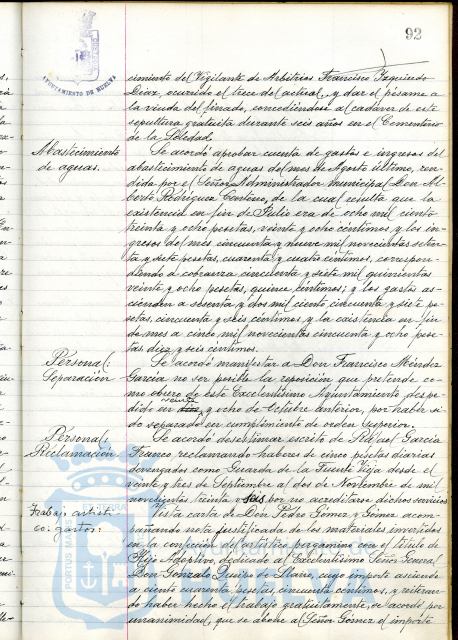 92
AYUNTAMIENTO DE HUELVA
cimiento del Vigilante de Arbitrios Francisco Izquierdo
Díaz, ocurrido el trece del actual, y dar el pésame a
la viuda del finado, concediéndose al cadáver de este
sepultura gratuita durante seis años en el Cementerio
de la Soledad.
Abastecimiento
de aguas.
Se acordó aprobar cuenta de gastos e ingresos del
abastecimiento de aguas del mes de Agosto último, ren-
dida por el Señor Administrador municipal Don Al-
berto Rodríguez Centeno, de la cual resulta que la
existencia en fin de Julio era de ocho mil ciento
treinta y ocho pesetas, veinte y ocho céntimos y los in-
gresos del mes cincuenta y nueve mil novecientas seten-
ta y siete pesetas, cuarenta y cuatro céntimos, correspon-
diendo a cobranza cincuenta y siete mil quinientas
veinte y ocho pesetas, quince céntimos; y los gastos as-
cienden a sesenta y dos mil ciento cincuenta y siete pe-
setas, cincuenta y seis céntimos, y la existencia en fin
de mes a cinco mil novecientas cincuenta y ocho pese-
tas, diez y seis céntimos.
Personal:
Separación
Se acordó manifestar a Don Francisco Méndez
García no ser posible la reposición que pretende co-
mo obrero de este Excelentísimo Ayuntamiento, despe-
dido en veinte y ocho de Octubre anterior, por haber si-
do separado en cumplimiento de orden Superior.
Personal:
Reclamación
Se acordó desestimar escrito de Rafael García
Franco reclamando haberes de cinco pesetas diarias
devengados como Guarda de la Fuente Vieja desde el
veinte y tres de Septiembre al dos de Noviembre de mil
novecientos treinta y seis por no acreditarse dichos servicios
Trabajo artísti-
co: gastos:
Vista carta de Don Pedro Gómez y Gómez acom-
pañando nota justificada de los materiales invertidos
en la confección del artístico pergamino con el título de
Hijo Adoptivo, dedicado al Excelentísimo Señor General
Don Gonzalo Queipo de Llano, cuyo importe asciende
a ciento cuarenta pesetas, cincuenta céntimos, y reiteran-
do haber hecho el trabajo gratuitamente, se acordó por
unanimidad, que se abone al Señor Gómez el importe
PORTUS MARIS